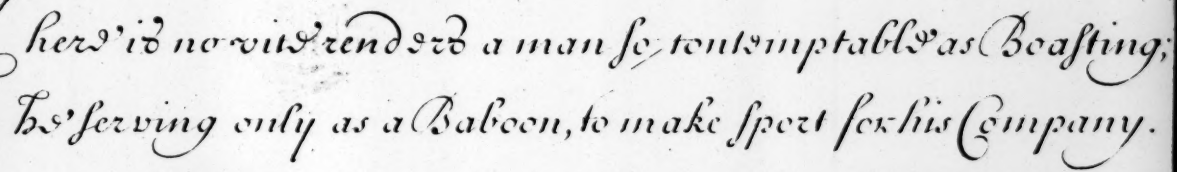 here is no vice renders a man so contemptable as Boasting;
He serving only as a Baboon, to make sport for his Company.